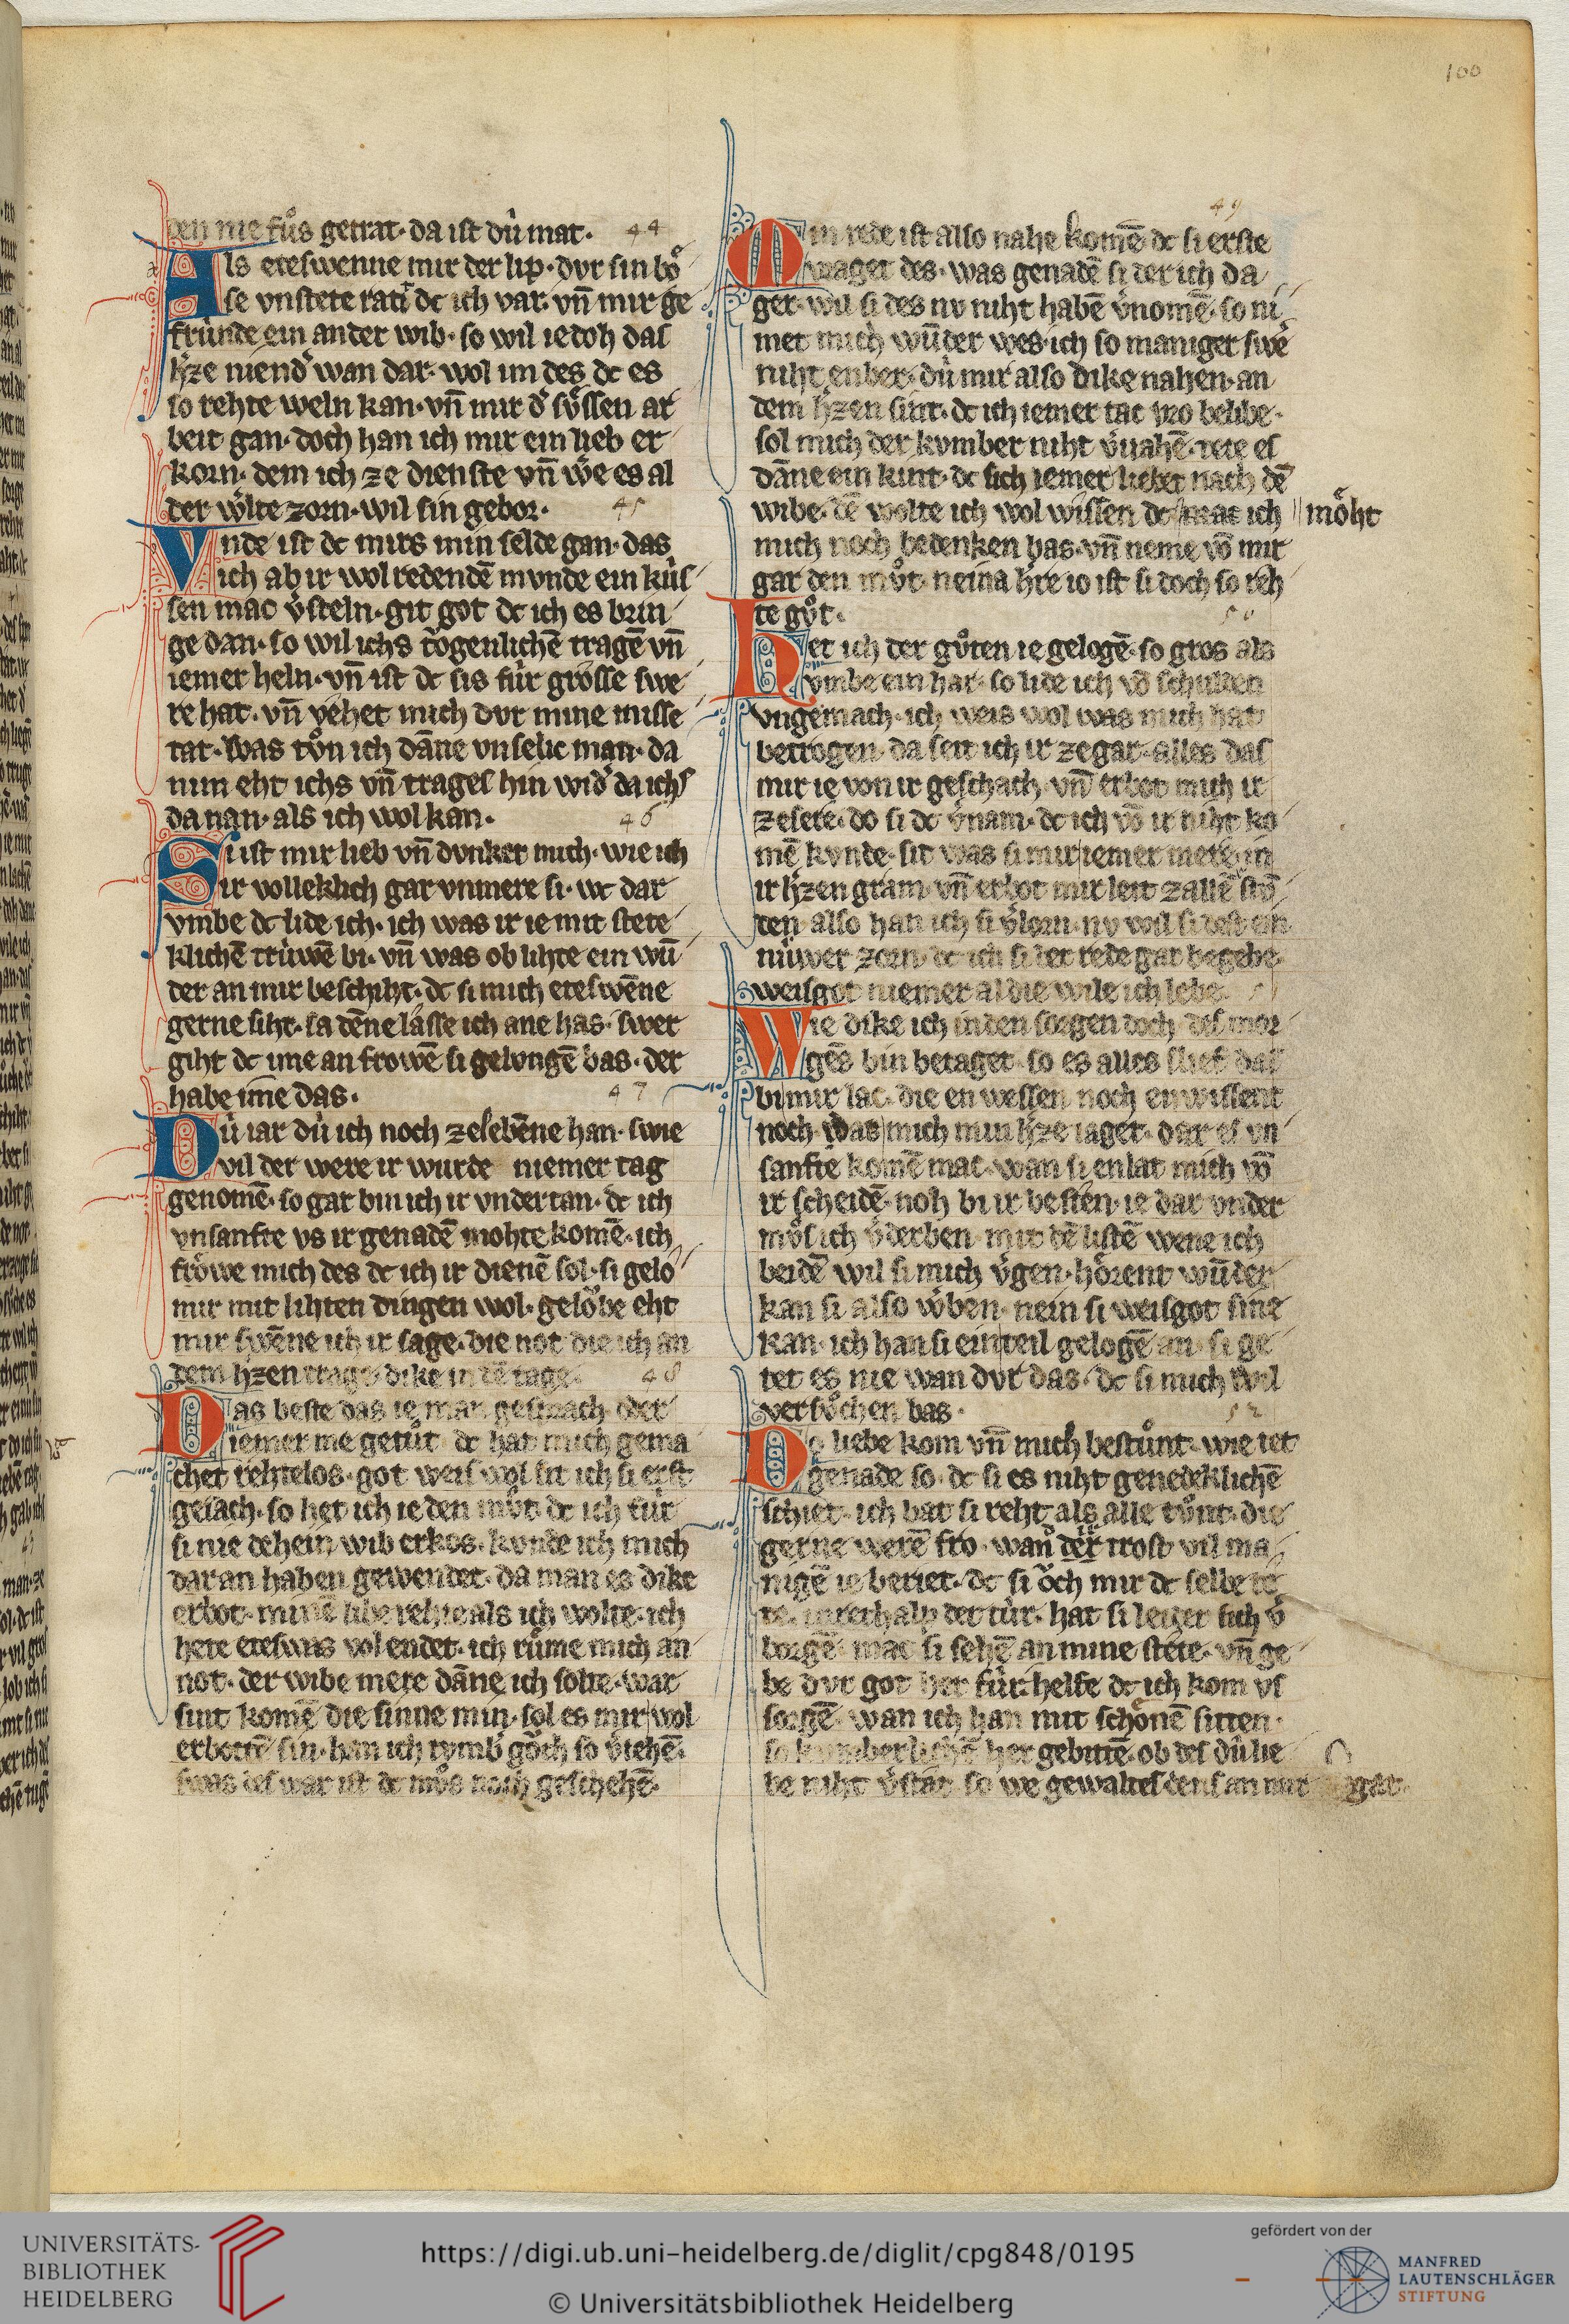 100
den nie fůs getrat· da ist dú mat· 44
Als eteswenne mir der lip· dvr sin bo͛
se vnstete ratet dc ich var· vn̄ mir ge
frúnde ein ander wib· so wil iedoh das
h͛ze niend͛ wan dar· wol im des dc es
so rehte weln kan· vn̄ mir d͛ sv̊ssen ar
beit gan· doch han ich mir ein lieb er
korn· dem ich ze dienste vn̄ we͛ es al
der w͛lte zorn· wil sin gebor· 45
Vnde ist dc mirs min selde gan· das
ich ab ir wol redendē mvnde ein kús
sen mac v͛steln· git got dc ich es brin
ge dan· so wil ichs to͛genlichē tragē vn̄
iemer heln· vn̄ ist dc sis fúr grosse swe
re hat· vn̄ vehet mich dvr mine misse
tat· was tv̊n ich dāne vnselic man· da
nim eht ichs vn̄ trages hin wid͛ da ichs
da nan· als ich wol kan· 46
Si ist mir lieb vn̄ dvnket mich· wie ich
ir volleklich gar vnmere si· wc dar
vmbe dc lide ich· ich was ir ie mit stete
klichē trúwē bi· vn̄ was ob lihte ein wū
der an mir beschiht· dc si mich eteswēne
gerne siht· sa dēne lasse ich ane has· swer
giht dc ime an frowē si gelvngē bas· der
habe ime das· 47
Dú iar dú ich noch ze lebēne han· swie
vil der were ir wurde niemer tag
genomē· so gar bin ich ir vndertan· dc ich
vnsanfte vs ir genadē mohte komē· ich
fro͛we mich des dc ich ir dienē sol· si gelo
nir mit lihten dingen wol· gelo͛be eht
mir swēne ich ir sage· die not die ich an
dem h͛zen trage dike in dē tage· 48
Das beste das ie man gesprach oder
iemer me getůt dc hat mich gema
chet redelos· got weis wol sit ich si erst
gesach· so het ich ie den mv̊t· dc ich fúr
si nie dehein wib erkos· kvnde ich mich
dar an haben gewendet· da man es dike
erbot· minē libe rehte als ich wolte· ich
hete eteswas volendet· ich rům̊e mich an
not· der wibe mere dāne ich solte· war
sint komē die sinne min· sol es mir wol
erbottē sin· han ich tvmb͛ go͛ch so v͛iehē·
swas des war ist dc mv̊s noch geschehē· 49
Min rede ist also nahe komē dc si erste
vraget des· was genadē si der ich da
ger· wil si des nv niht habē v͛nomē· so ni
met mich wūder wes ich so maniger swe͛
niht enber· dú mir also dike nahen· an
dem h͛zen sint· dc ich iemer tac vro belibe·
sol mich der kvmber niht v͛vahē· tete es
dāne ein kint· dc sich iemer liebet nach dē
wibe· dē wolte ich wol wissen dc mac ich mo͛ht
mich noch bedenken bas· vn̄ neme vō mir
gar den mv̊t· neina h͛re io ist si doch so reh
te gv̊t· 50
Het ich der gůten ie gelogē· so gros als
vmbe ein har· so lide ich vō schulden
vngemach· ich weis wol was mich hat
betrogen· da seit ich ir ze gar· alles das
mir ie von ir geschach· vn̄ erbot mich ir
ze sere· do si dc v͛nam· dc ich vō ir niht ko
mē kvnde· sit was si mir iemer mere in
ir h͛zen gram· vn̄ erbot mir leit zallē stv̄
den· also han ich si v͛lorn· nv wil si dest ein
núwer zorn· dc ich si der rede gar begebe·
weisgot niemer al die wile ich lebe· 51
Wie dike ich in den sorgen doch des mor
gēs bin betaget· so es alles slief das
bi mir lac· die en wessen noch enwissent
noch· was mich min h͛ze iaget· dar es vn
sanfte komē mac· wan si enlat mich vō
ir scheidē· noh bi ir bestēn· ie dar vnder
mv̊s ich v͛derben· mit dē listē wene ich
beidē wil si mich v͛gen· ho͛rent wūder
kan si also w͛ben· nein si weisgot sine
kan· ich han si ein teil gelogē an· si ge
tet es nie wan dvr das· dc si mich wil
versv̊chen bas· 52
Do liebe kom vn̄ mich bestůnt· wie tet
genade so· dc si es niht genedeklichē
schiet· ich bat si reht als alle tv̊nt· die
gerne werē fro· wan der trost vil ma
nigē ie beriet· dc si o͛ch mir dc selbe te
te· innerhalp der túr· hat si leider sich v͛
borgē· mac si sehē an mine stete· vn̄ ge
be dvr got her fúr· helfe dc ich kom vs
sorgē· wan ich han mit scho͛nē sitten·
so kvmberlichē her gebittē· ob des dú lie
be niht v͛stat· so we gewaltes dens an mir gat·
UNIVERSITÄTS-
BIBLIOTHEK
HEIDELBERG
https://digi.ub.uni-heidelberg.de/diglit/cpg848/0195
© Universitätsbibliothek Heidelberg
gefördert von der
MANFRED
LAUTENSCHLÄGER
STIFTUNG